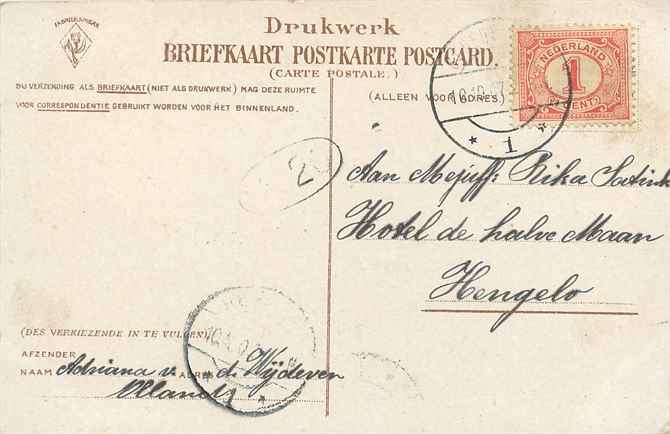 FABRIEKSMERK
Drukwerk
BRIEFKAART POSTKARTE POSTCARD.
(CARTE POSTALE.)
BIJ VERZENDING ALS BRIEFKAART (NIET ALS DRUKWERK) MAG DEZE RUIMTE
VOOR CORRESPONDENTIE GEBRUIKT WORDEN VOOR HET BINNENLAND.
(ALLEEN VOOR ADRES.)
NEDERLAND
1
CENT
1
2
Aan Mejuff: Rika
Hotel de halve Maan
Hengelo
(DES VERKIEZENDE IN TE VULLEN)
AFZENDER
NAAM Adriana v. d. Wijdeven
ADRES